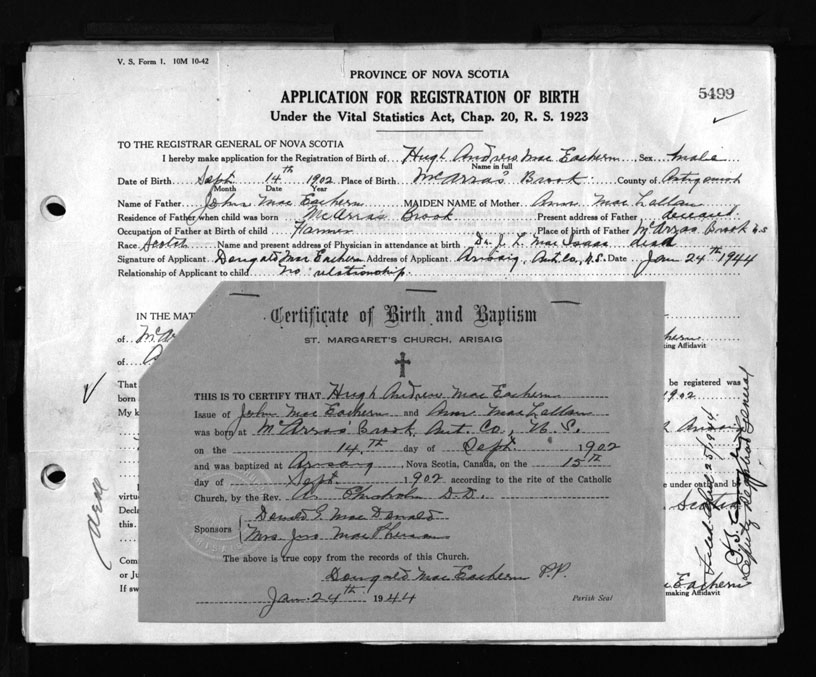 V. S. Form 1. 10M 10-42
PROVINCE OF NOVA SCOTIA
5499
APPLICATION FOR REGISTRATION OF BIRTH
Under the Vital Statistics Act, Chap. 20, R. S. 1923
TO THE REGISTRAR GENERAL OF NOVA SCOTIA
I hereby make application for the Registration of Birth of Hugh Andrew Mac Eachern, Sex male
Name in full
Date of Birth Sept 14th 1902 Place of Birth McArras Brook County of Antigonish
Month Date Year
Name of Father John Mac Eachern MAIDEN NAME of Mother Ann Mac Lellan
Residence of Father when child was born McArras Brook Present address of Father deceased
Occupation of Father at Birth of child Farmer Place of birth of Father McArras Brook N.S
Race Scotch Name and present address of Physician in attendance at birth Dr. J. L. Mac Isaac dead
Signature of Applicant Dougald Mac Eachern Address of Applicant Arisaig, Ant. Co., N.S. Date Jan 24th 1944
Relationship of Applicant to child no relationship.
IN THE MAT
of McAr
of
That
born
My k
virtue
Decla
this
Com
or Ju
If sw
Certificate of Birth and Baptism
ST. MARGARET'S CHURCH, ARISAIG
THIS IS TO CERTIFY THAT Hugh Andrew Mac Eachern
Issue of John Mac Eachern and Ann Mac Lellan
was born at McArras Brook, Ant. Co., N. S.
on the 14th day of Sept. 1902
and was baptized at Arisaig, Nova Scotia, Canada, on the 15th
day of Sept. 1902 according to the rite of the Catholic
Church, by the Rev. A. Chisholm D.D.
Sponsors Donald G. Mac Donald
Mrs. Jos. Mac Pherson
The above is true copy from the records of this Church.
Dougald Mac Eachern P.P.
Jan. 24th 1944 Parish Seal
chern
king Affidavit
be registered was
1902
Arisaig
e under oath and by
Scotia
Eachern
making Affidavit
Deputy Registrar General